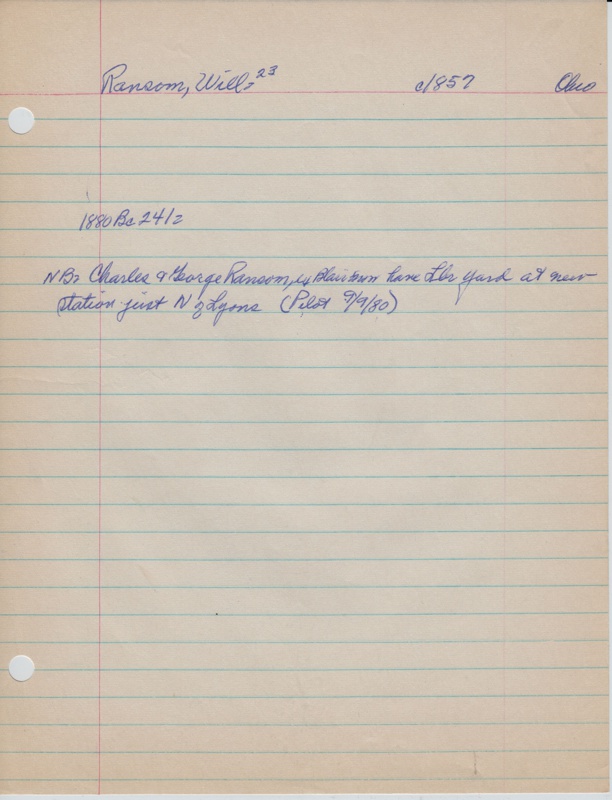 Ransom, Will 23 c1857 Ohio
1880 Bc 241/2
NB: Charles & George Ransom, ex Blairstown have Lbr yard at new
station just N of Lyons (Pilot 9/9/80)